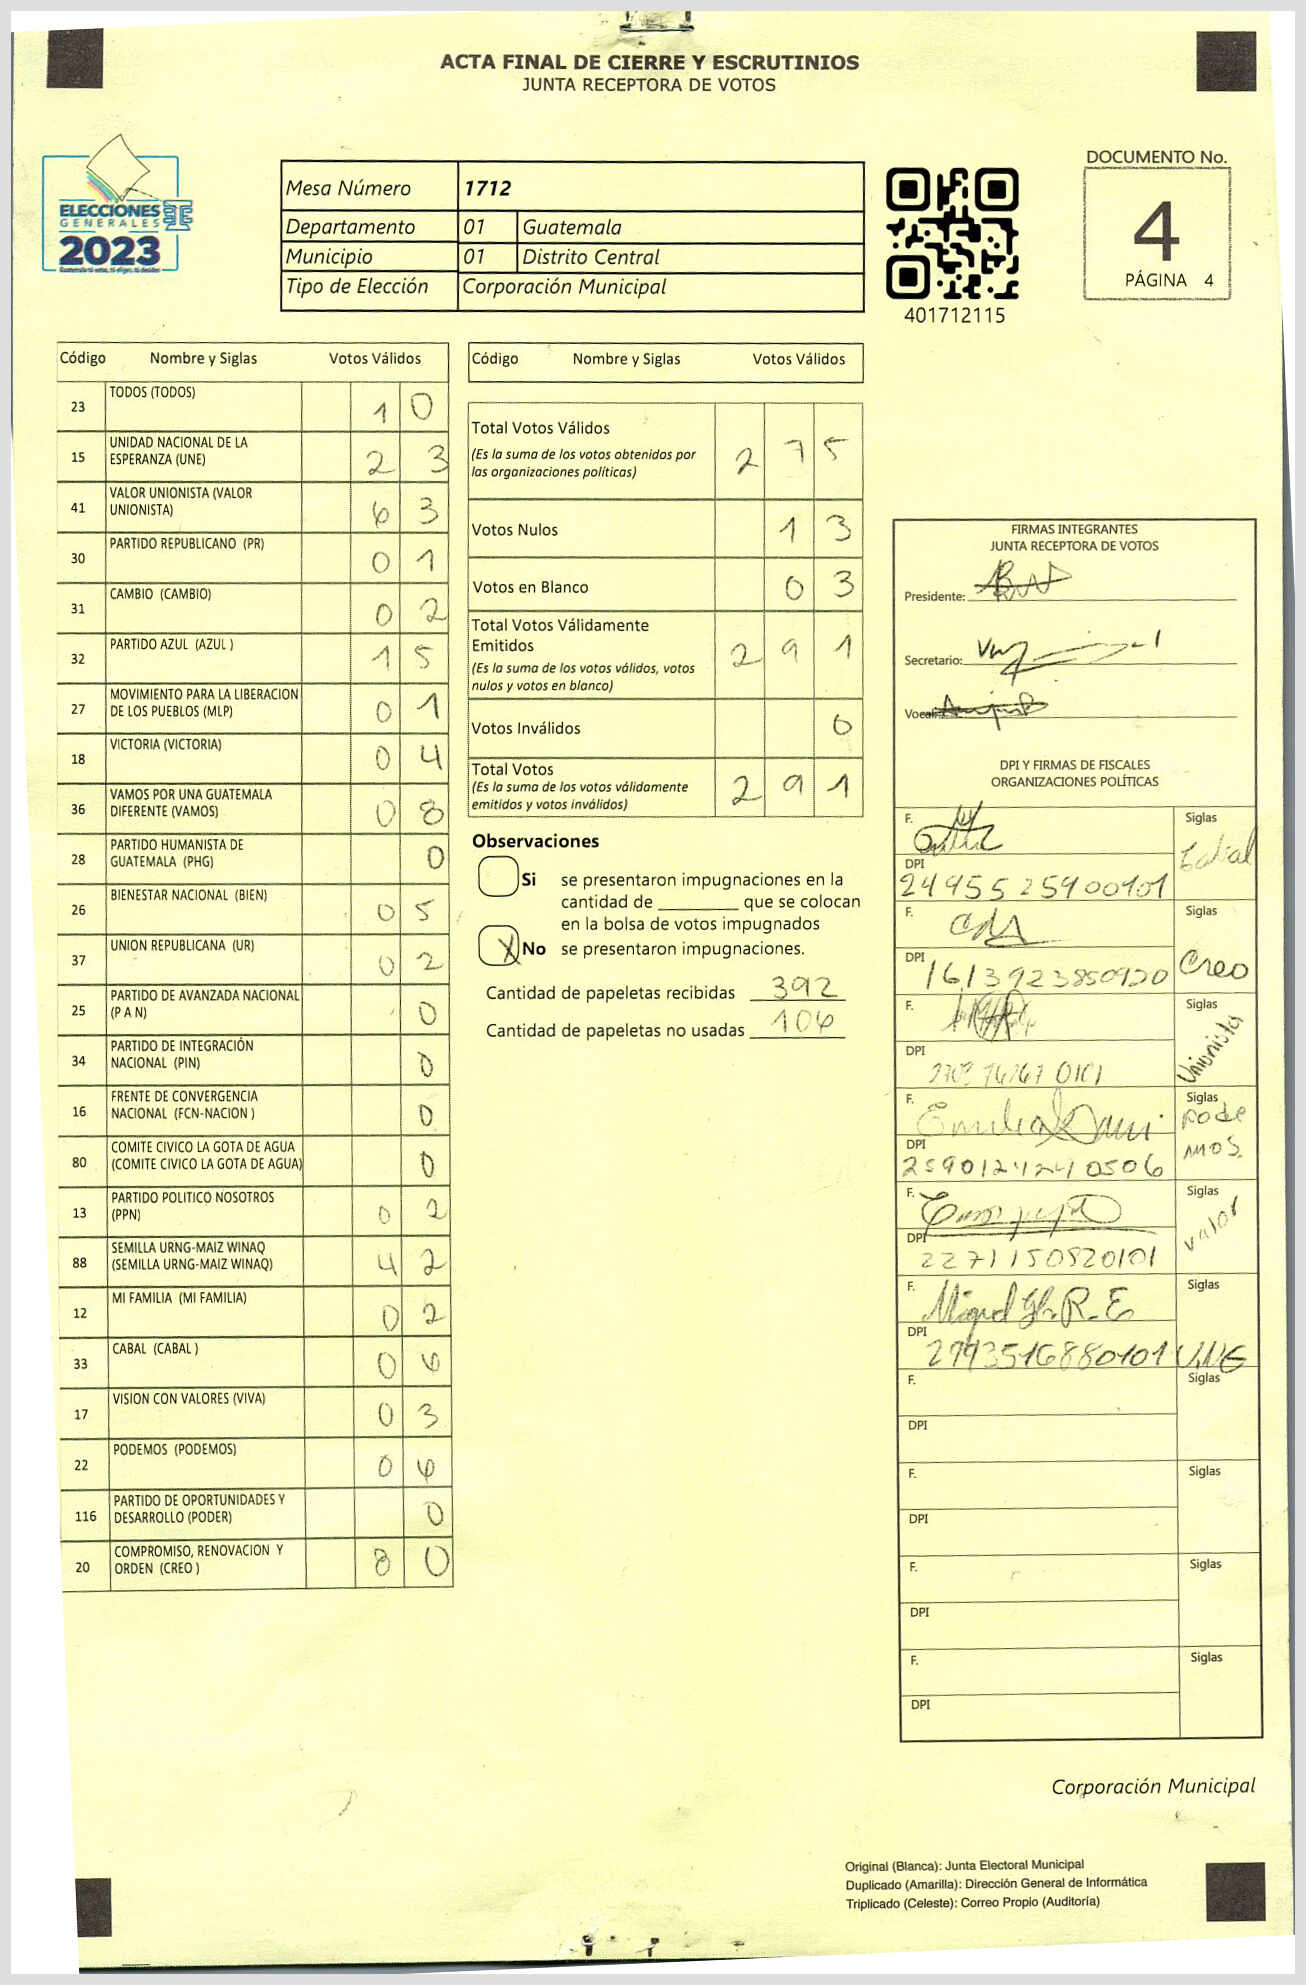 ACTA FINAL DE CIERRE Y ESCRUTINIOS
JUNTA RECEPTORA DE VOTOS
ELECCIONES
GENERALES
2023
Mesa Número 1712
Departamento 01 Guatemala
Municipio 01 Distrito Central
Tipo de Elección Corporación Municipal
401712115
DOCUMENTO No.
4
PÁGINA 4
Código Nombre y Siglas Votos Válidos
23 TODOS (TODOS) 1 0
15 UNIDAD NACIONAL DE LA ESPERANZA (UNE) 2 3
41 VALOR UNIONISTA (VALOR UNIONISTA) 6 3
30 PARTIDO REPUBLICANO (PR) 0 1
31 CAMBIO (CAMBIO) 0 2
32 PARTIDO AZUL (AZUL ) 1 5
27 MOVIMIENTO PARA LA LIBERACION DE LOS PUEBLOS (MLP) 0 1
18 VICTORIA (VICTORIA) 0 4
36 VAMOS POR UNA GUATEMALA DIFERENTE (VAMOS) 0 8
28 PARTIDO HUMANISTA DE GUATEMALA (PHG) 0
26 BIENESTAR NACIONAL (BIEN) 0 5
37 UNION REPUBLICANA (UR) 0 2
25 PARTIDO DE AVANZADA NACIONAL (P A N) 0
34 PARTIDO DE INTEGRACIÓN NACIONAL (PIN) 0
16 FRENTE DE CONVERGENCIA NACIONAL (FCN-NACION ) 0
80 COMITE CIVICO LA GOTA DE AGUA (COMITE CIVICO LA GOTA DE AGUA) 0
13 PARTIDO POLITICO NOSOTROS (PPN) 0 2
88 SEMILLA URNG-MAIZ WINAQ (SEMILLA URNG-MAIZ WINAQ) 4 2
12 MI FAMILIA (MI FAMILIA) 0 2
33 CABAL (CABAL ) 0 6
17 VISION CON VALORES (VIVA) 0 3
22 PODEMOS (PODEMOS) 0 6
116 PARTIDO DE OPORTUNIDADES Y DESARROLLO (PODER) 0
20 COMPROMISO, RENOVACION Y ORDEN (CREO ) 8 0
Código Nombre y Siglas Votos Válidos
Total Votos Válidos 2 7 5
(Es la suma de los votos obtenidos por
las organizaciones políticas)
Votos Nulos 1 3
Votos en Blanco 0 3
Total Votos Válidamente
Emitidos 2 9 1
(Es la suma de los votos válidos, votos
nulos y votos en blanco)
Votos Inválidos 0
Total Votos 2 9 1
(Es la suma de los votos válidamente
emitidos y votos inválidos)
Observaciones
Si se presentaron impugnaciones en la
cantidad de ________ que se colocan
en la bolsa de votos impugnados
X No se presentaron impugnaciones.
Cantidad de papeletas recibidas 392
Cantidad de papeletas no usadas 106
FIRMAS INTEGRANTES
JUNTA RECEPTORA DE VOTOS
Presidente:
Secretario:
Vocal:
DPI Y FIRMAS DE FISCALES
ORGANIZACIONES POLÍTICAS
F. Siglas Cabal
DPI 2495525900101
F. Siglas Creo
DPI 1613923850920
F. Siglas Unionista
DPI
F. Siglas Pode
mos.
DPI 2590124240506
F. Siglas Valor
DPI 2271150820101
F. Siglas
DPI 2793516880101 UNE
F. Siglas
DPI
F. Siglas
DPI
F. Siglas
DPI
F. Siglas
DPI
Corporación Municipal
Original (Blanca): Junta Electoral Municipal
Duplicado (Amarilla): Dirección General de Informática
Triplicado (Celeste): Correo Propio (Auditoría)